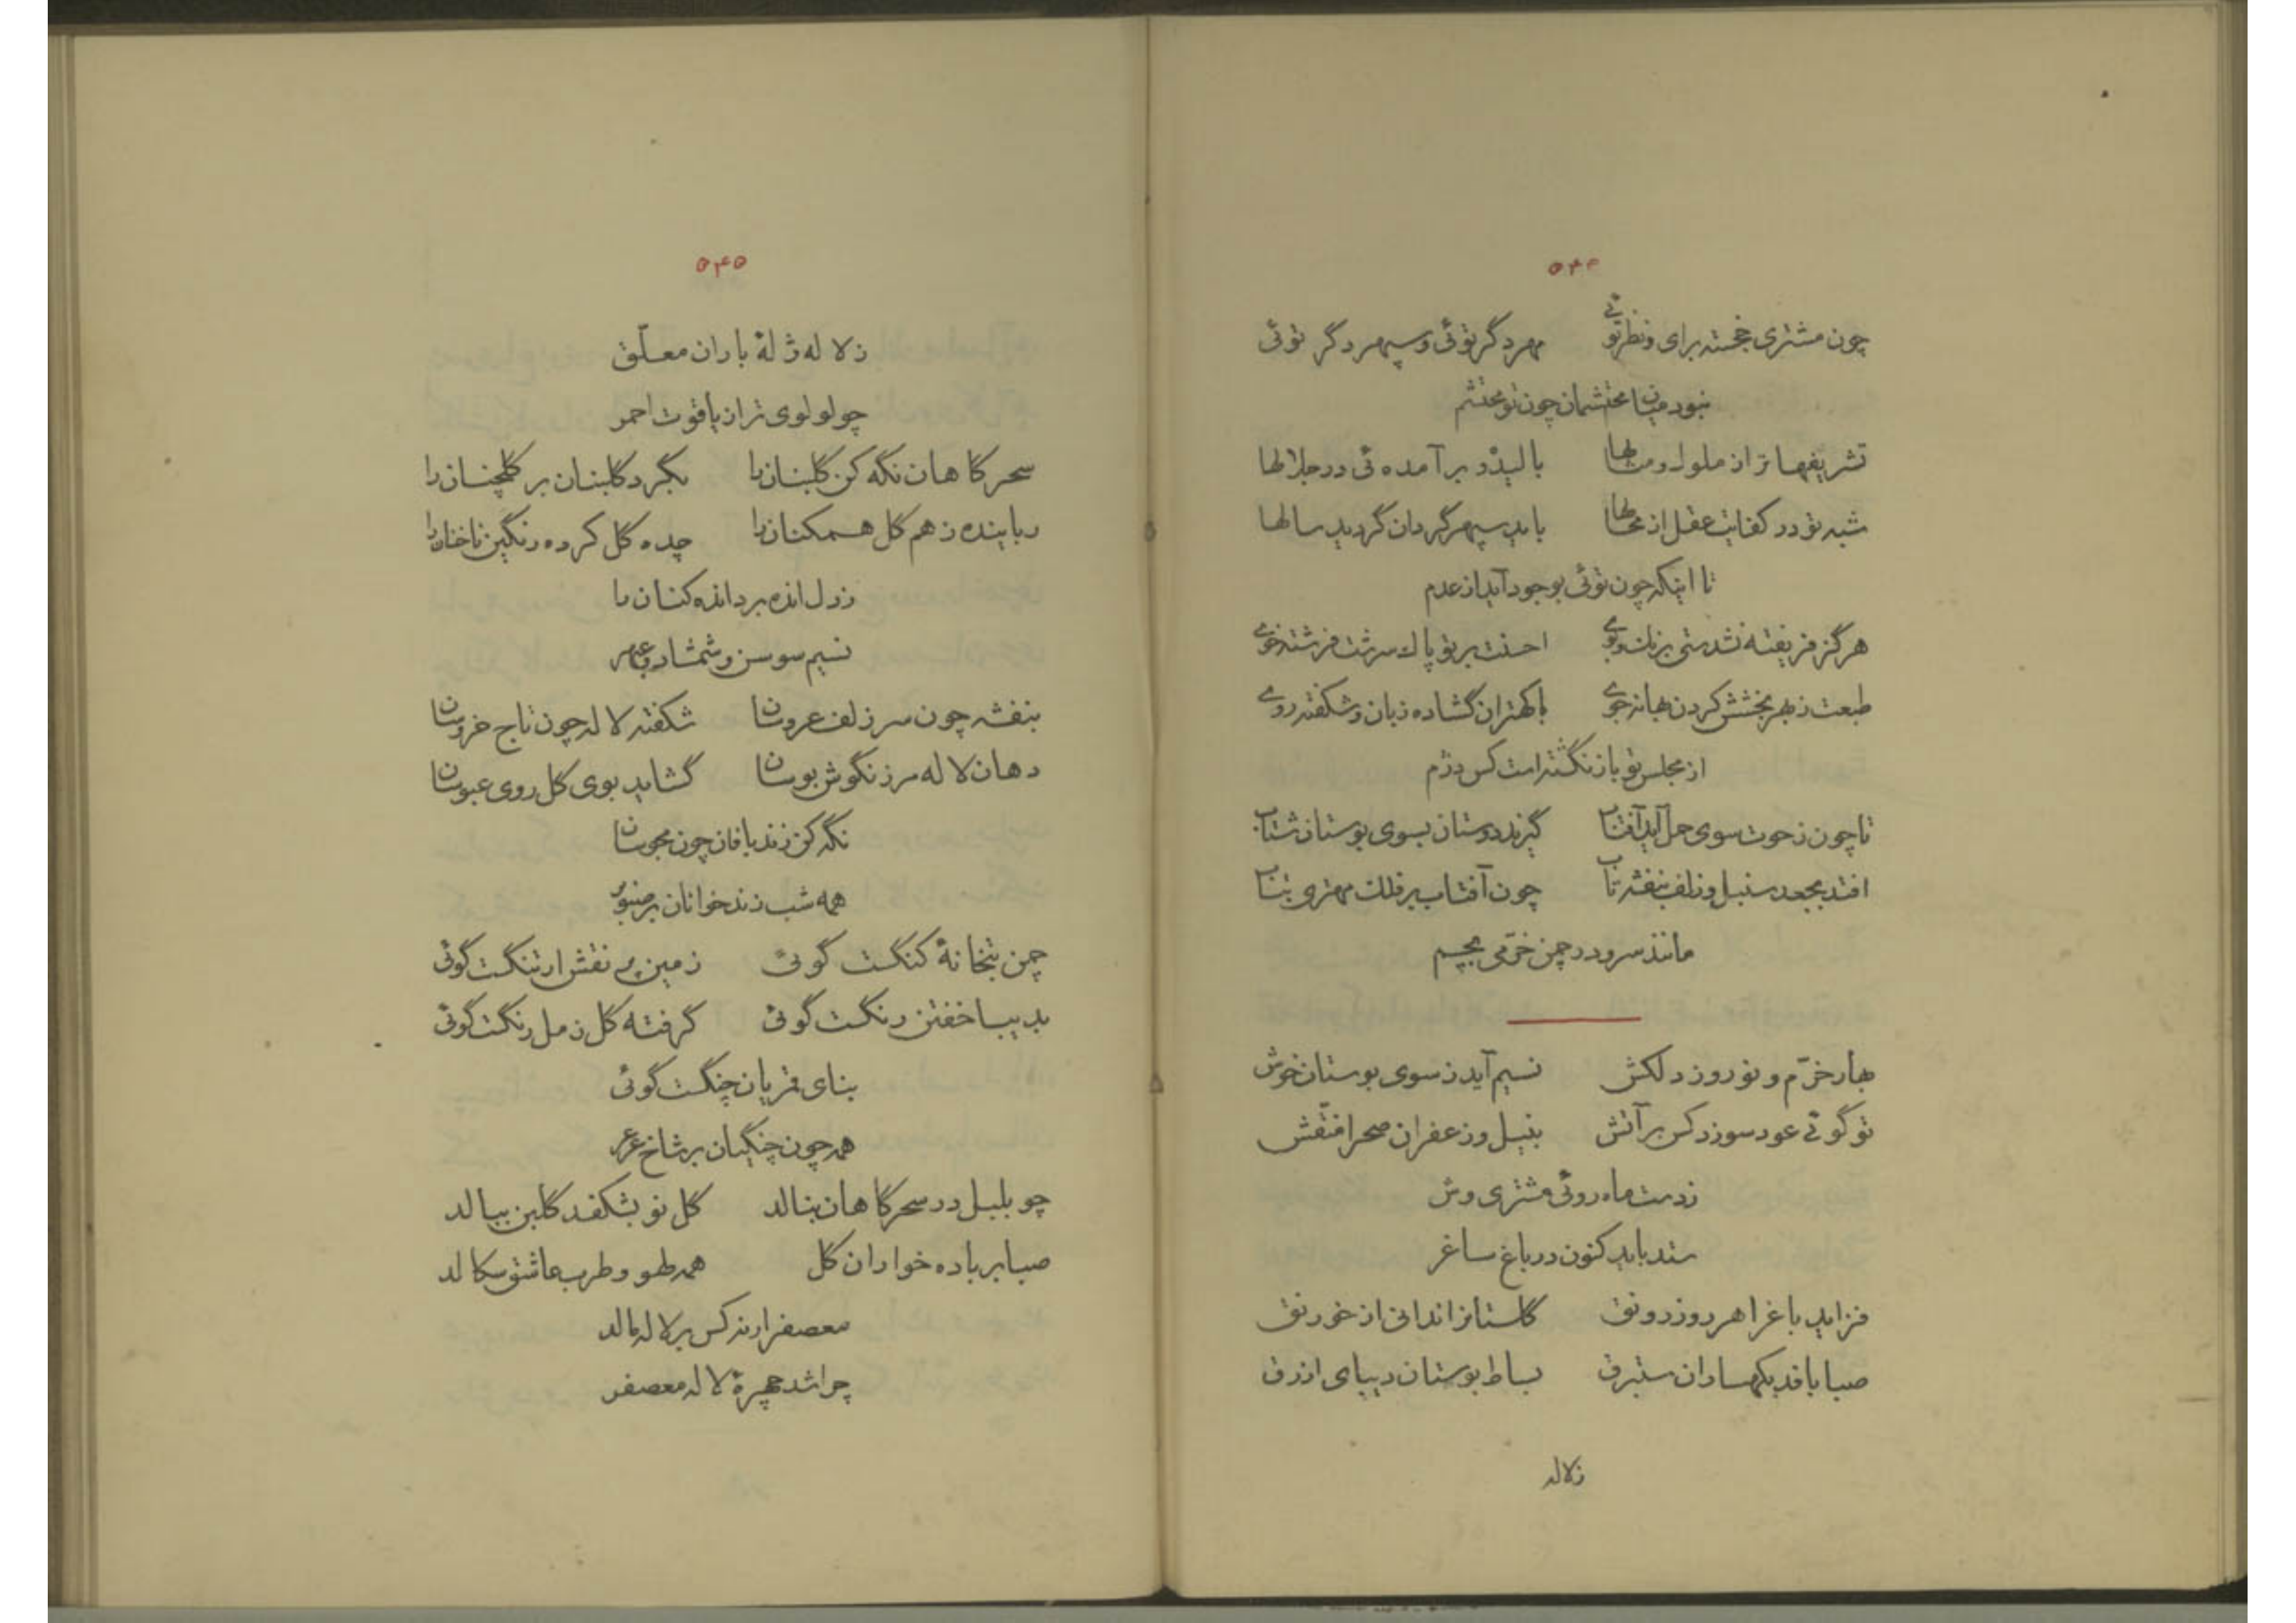 ۵۴۴
چون مشتری خجسته برای و نظر توئی مهر دگر توئی و سپهر دگر توئی
نبود میان محتشمان چون تو محتشم
تشریفها تراز ملوک و مثالها بالیده بر آمده ئی در جلالها
شبه تو در کفایت عقل از محالها باید سپهر گردان گردید سالها
تا اینکه چون توئی بوجود آید از عدم
هرگز فریفته نشدستی برنک و بوی احسنت بر تو پاك سرشت فرشته خوی
طبعت ز بهر بخشش کردن بهانه جوی با کهتران گشاده زبان و شکفته روی
از مجلس تو باز نگشته است کس دژم
تا چون ز حوت سوی حمل آید آفتاب گیرند دوستان بسوی بوستان شتاب
افتد بجعد سنبل و زلف بنفشه تاب چون آفتاب بر فلك مهتری بتاب
مانند سرو در چمن خرّمی بچم
بهار خرّم و نوروز دلکش نسیم آید ز سوی بوستان خوش
تو گوئی عود سوزد کس بر آتش بنیل و زعفران صحرا منقّش
ز دست ماه روئی مشتری وش
ستد باید کنون در باغ ساغر
فزاید باغ را هر روز رونق گلستانرا ندانی از خورنق
صبا بافد بکهساران ستبرق بساط بوستان دیبای ازرق
زلاله
۵۴۵
زلاله ژالهٔ باران معلّق
چو لولوی تر از یاقوت احمر
سحرگاهان نگه کن گلبنان را بگرد گلبنان بر گلچنان را
رباینده ز هم گل همکنان را چده گل کرده رنگین ناخنان را
ز دل انده برد انده کنان را
نسیم سوسن و شمشاد و عبهر
بنفشه چون سر زلف عروسان شکفته لاله چون تاج خروسان
دهان لاله مرزنگوش بوسان گشاید بوی گل روی عبوسان
نگه کن زند بافان چون مجوسان
همه شب زند خوانان بر صنوبر
چمن بتخانهٔ گنگست گوئی زمین پر نقش ارتنگست گوئی
بدیبا خفتن رنگست گوئی گرفته گل ز مل رنگست گوئی
بنای قمریان چنگست گوئی
همه چون چنگیان بر شاخ عرعر
چو بلبل در سحرگاهان بنالد گل نو بشکفد گلبن ببالد
صبا بر باده خواران گل همه لهو و طرب عاشق سگالد
معصفر ار نه کس بر لاله مالد
چرا شد چهرهٔ لاله معصفر